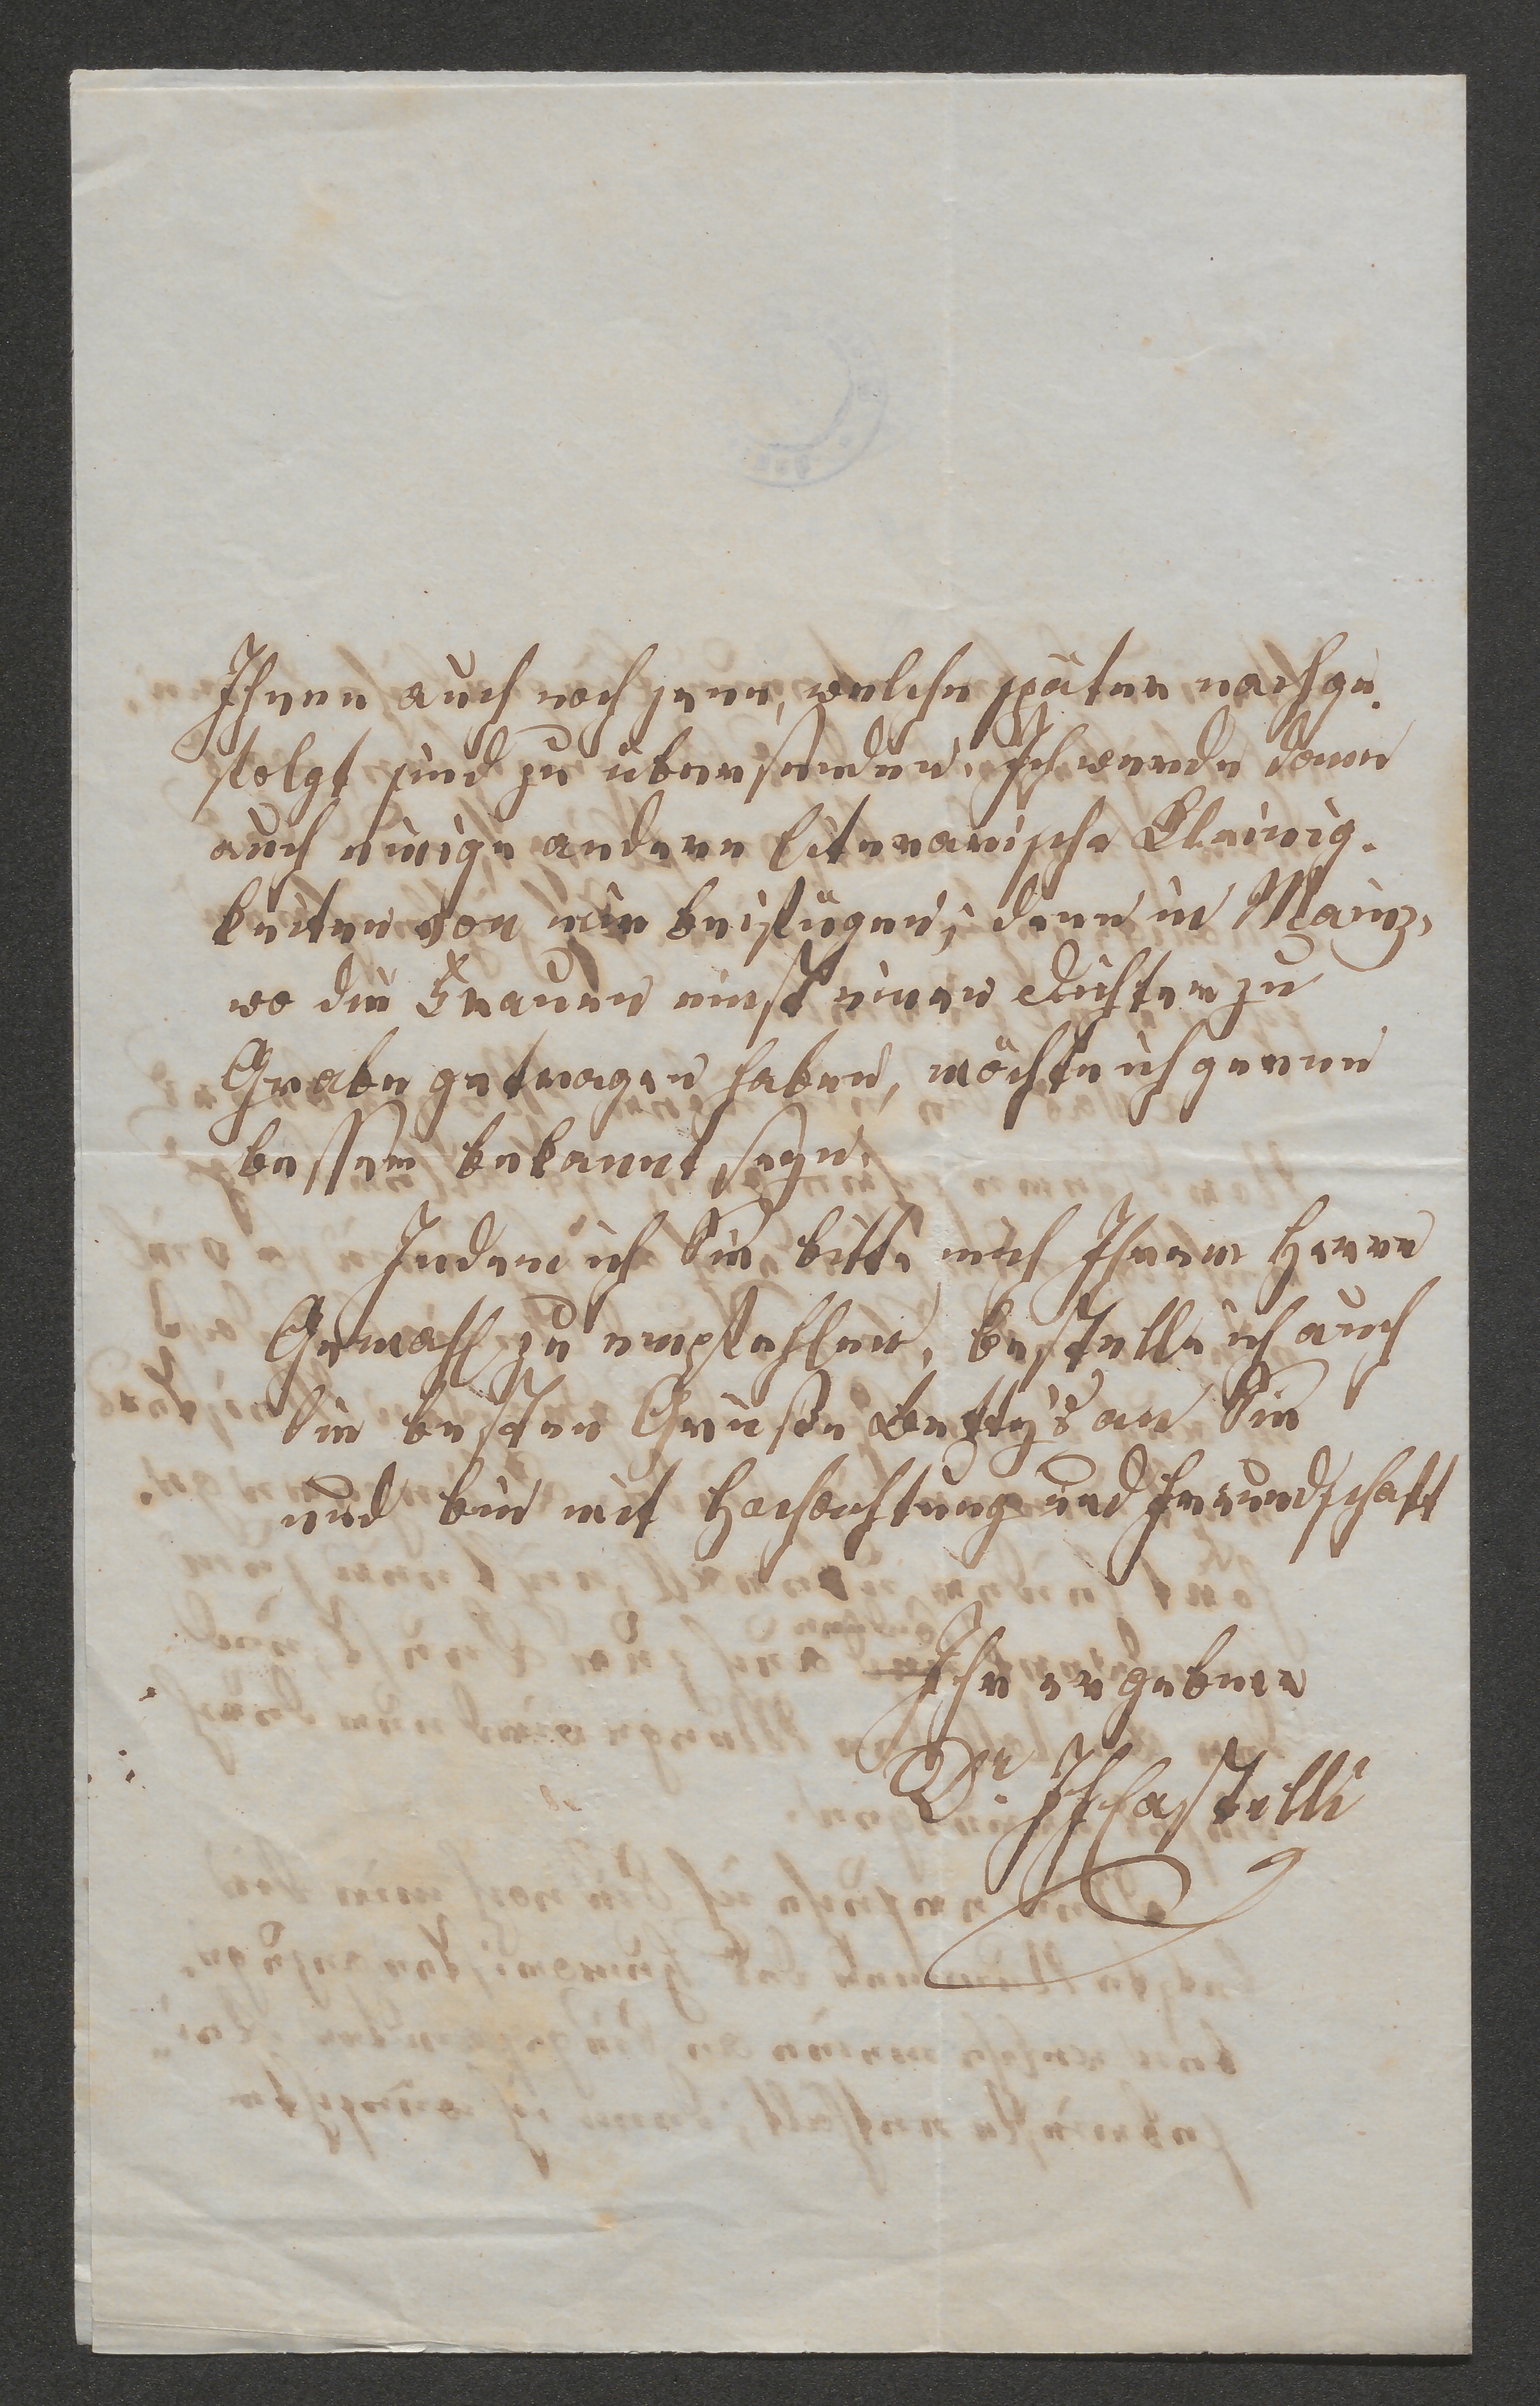 Ihnen auch noch jene, welche später nachge-
folgt sind zu übersenden. Ich werde dann
auch einige andere literarische Kleinig-
keiten von mir beifügen; denn in Mainz,
wo die Frauen einst einen Dichter zu
Grabe getragen haben, möchte ich gerne
besser bekannt seyn.
Indem ich Sie bitte mich Ihrem Herrn
Gemahl zu empfehlen, bestelle ich auch
die besten Grüße Betty's an Sie
und bin mit Hochachtung und Freundschaft
Ihr ergebner
Dr IFCastelli